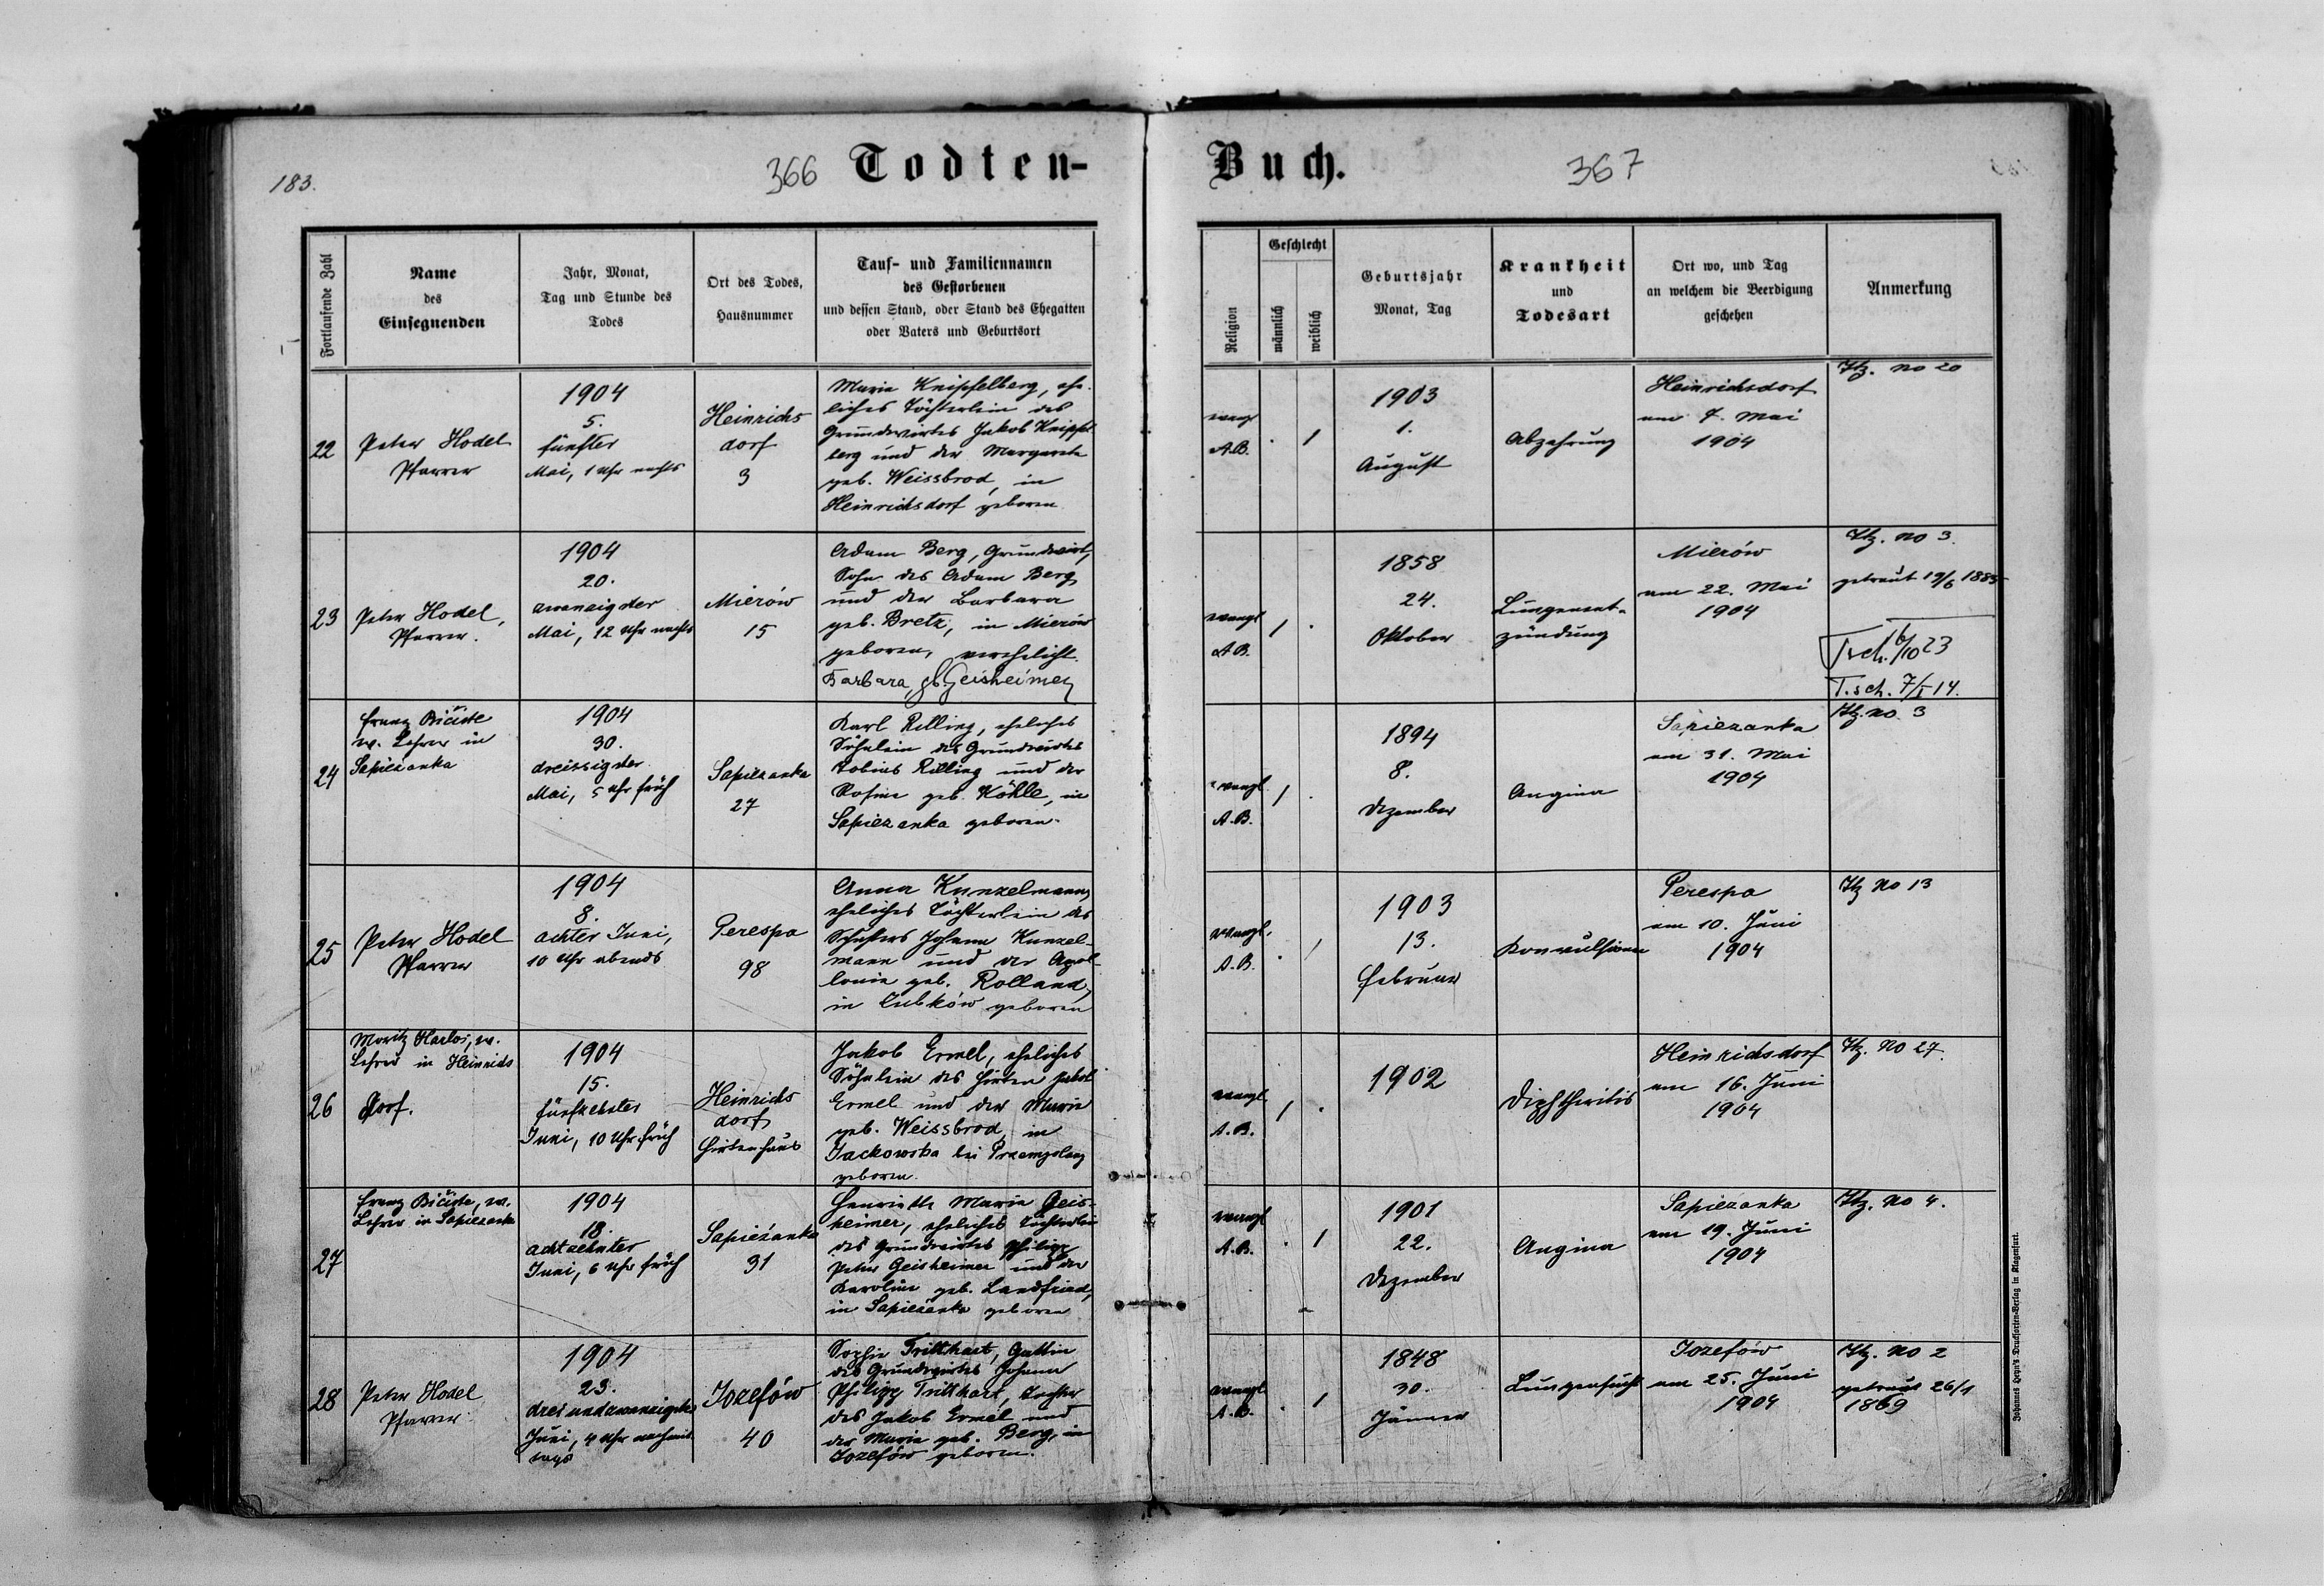 183.
366 Todten-
Buch. 367
Fortlaufende Zahl
Name
des
Einsegnenden
Jahr, Monat,
Tag und Stunde des
Todes
Ort des Todes,
Hausnummer
Tauf- und Familiennamen
des Gestorbenen
und dessen Stand, oder Stand des Ehegatten
oder Vaters und Geburtsort
Religion
Geschlecht
männlich
weiblich
Geburtsjahr
Monat, Tag
Krankheit
und
Todesart
Ort wo, und Tag
an welchem die Beerdigung
geschehen
Anmerkung
22
Peter Hodel
Pfarrer
1904
5.
fünfter
Mai, 1 Uhr nachts
Heinrichs
dorf
3
Maria Knipfelberg, ehe-
liches Töchterlein des
Grundwirtes Jakob Knipfel
berg und der Margareta
geb. Weissbrod, in
Heinrichsdorf geboren
evang
A.B.
. /
1903
1.
August
Abzehrung
Heinrichsdorf
am 7. Mai
1904
Itz. No 20
23
Peter Hodel,
Pfarrer.
1904
20.
zwanzigster
Mai, 12 Uhr nachts
Mierów
15
Adam Berg, Grundwirt,
Sohn des Adam Berg
und der Barbara
geb. Bretz, in Mierów
geboren, verehelicht.
Barbara, gb. Geisheimer
evangl
A.B.
/ .
1858
24.
Oktober
Lungenent-
zündung
Mierów
am 22. Mai
1904
Itz. No 3.
getraut 19/6 1885
Tsch. 6/10 23
T.sch. 7/I 14.
24
Franz Bičiste
w. Lehrer in
Sapiezanka
1904
30.
dreissigster
Mai, 5 Uhr früh
Sapiezanka
27
Karl Rilling, eheliches
Söhnlein des Grundwirtes
Tobias Rilling und der
Rosine geb. Köhle, in
Sapiezanka geboren.
evangl
A.B.
/ .
1894
8.
Dezember
Angina
Sapiezanka
am 31. Mai
1904
Itz. No 3
25
Peter Hodel
Pfarrer
1904
8.
achter Juni,
10 Uhr abends
Perespa
98
Anna Kunzelmann,
eheliches Töchterlein des
Schusters Johann Kunzel-
mann und der Apol-
lonia geb. Rolland,
in Zubków geboren
evangl.
A.B.
. /
1903
13.
Februar
Konvulsionen
Perespa
am 10. Juni
1904
Itz No 13
26
Moritz Harlos, w.
Lehrer in Heinrichs
dorf.
1904
15.
fünfzehnter
Juni, 10 Uhr früh
Heinrichs
dorf
Hirtenhaus
Jakob Ermel, eheliches
Söhnlein des Hirten Jakob
Ermel und der Maria
geb. Weissbrod, in
bei
geboren.
evangl.
A.B.
/ .
1902
Diphtheritis
Heinrichsdorf
am 16. Juni
1904
Itz. No 27.
27
Franz Bičiste, w.
Lehrer in Sapiezanka
1904
18.
achtzehnter
Juni, 6 Uhr früh
Sapiežanka
31
Henriette Maria Geis-
heimer, eheliches Töchterlein
des Grundwirtes Philipp
Peter Geisheimer und der
Karoline geb. Landfried,
in Sapiežanka geboren
evangl
A.B.
. /
1901
22.
Dezember
Angina
Sapiezanka
am 19. Juni
1904
Itz. No 4.
28
Peter Hodel
Pfarrer
1904
23.
dreiundzwanzigster
Juni, 4 Uhr nachmit
tags
Jozefów
40
Sophie Tritthart, Gattin
des Grundwirtes Johann
Philipp Tritthart, Tochter
des Jakob Ermel und
der Maria geb. Berg, in
Jozefów geboren.
evangl.
A.B.
. /
1848
30.
Jänner
Lungensucht
Jozefów
am 25. Juni
1904
Itz. No 2
getraut 26/1
1869
Johannes Heyn's Drucksorten-Verlag in Klagenfurt.